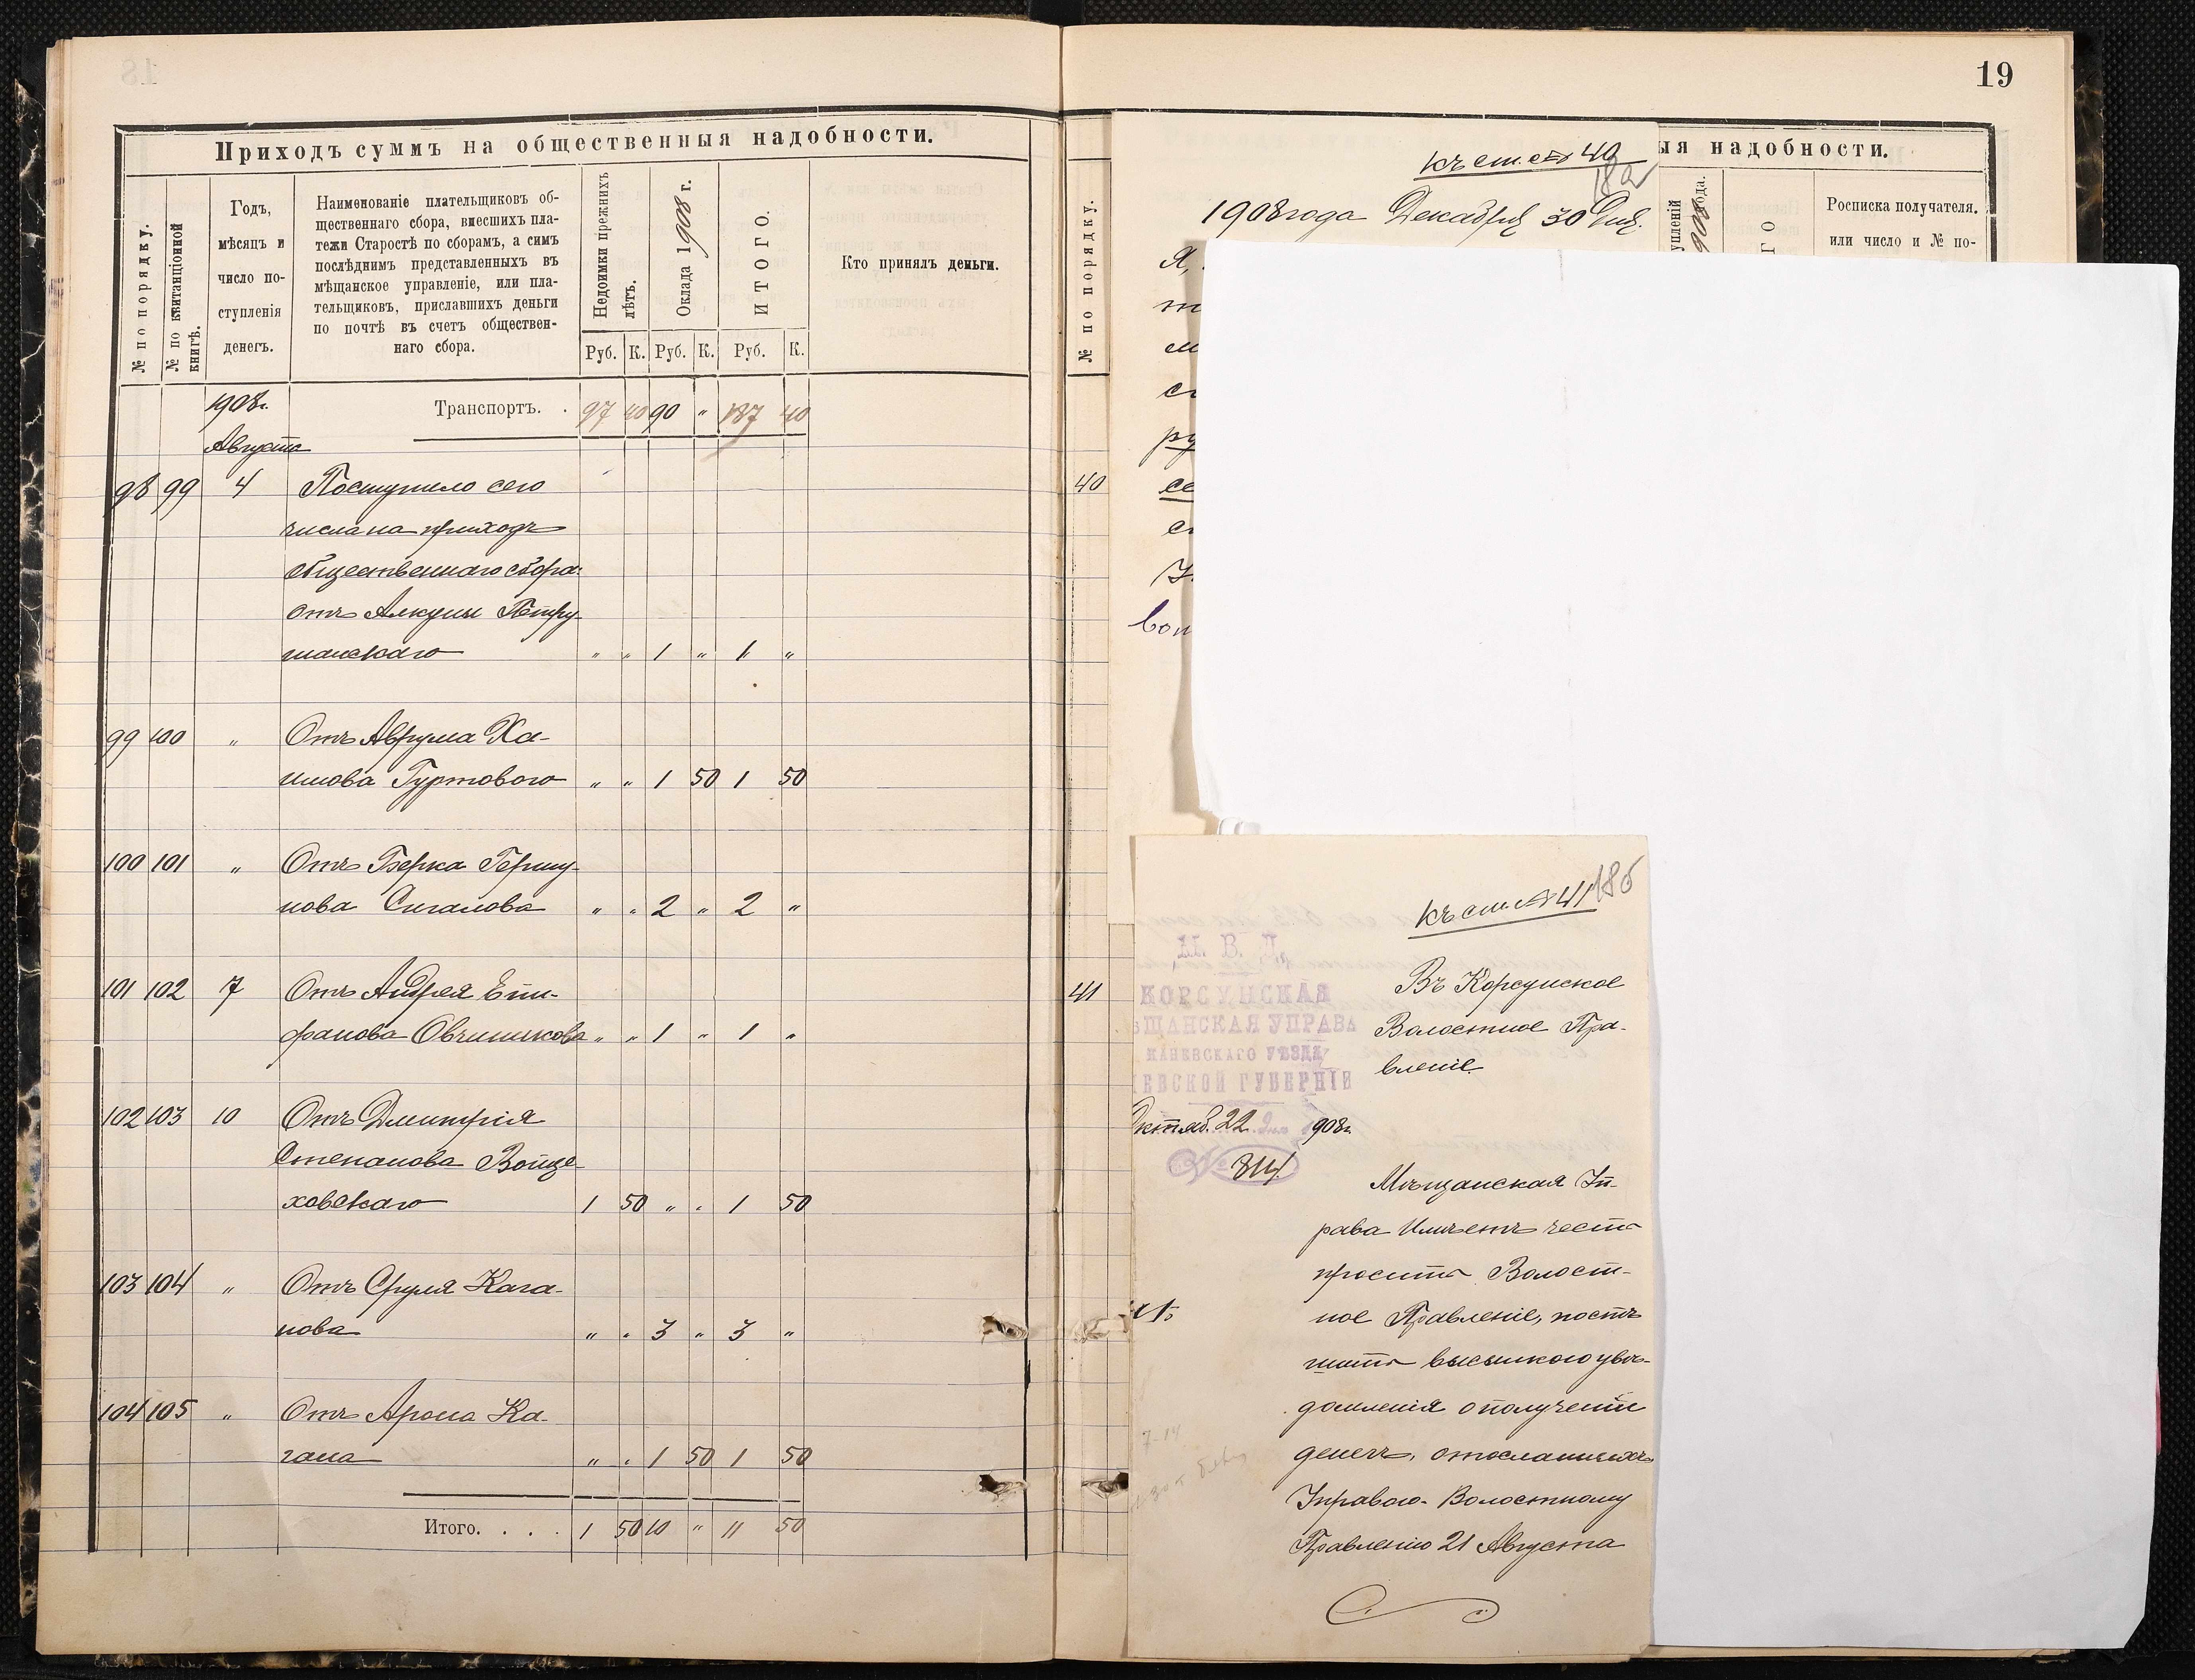 Приходъ суммъ на общественныя надобности.
№ по порядку.
№ по квитанціонной
книгѣ.
Годъ,
мѣсяцъ и
число по-
ступленія
денегъ.
Наименованіе плательщиковъ об-
щественнаго сбора, внесшихъ пла-
тежи Старостѣ по сборамъ, а симъ
послѣднимъ представленныхъ въ
мѣщанское управленіе, или пла-
тельщиковъ, приславшихъ деньги
по почтѣ въ счетъ обществен-
наго сбора.
Недоимки прежнихъ
лѣтъ.
Оклада 1908 г.
ИТОГО.
Кто принялъ деньги.
Руб. К. Руб. К. Руб. К.
1908г. Транспортъ. . 97 40 90 " 187 40
Августа
98 99 4 Поступило сего
числа на приходъ
общественнаго сбора:
отъ
шанскаго " " 1 " 1 "
99 100 " Отъ Аврума Ха-
имова Гуртового " " 1 50 1 50
100 101 " Отъ Берка Гершу-
нова Сигалова " " 2 " 2 "
101 102 7 Отъ Андрея Епи-
фанова Овчиникова " " 1 " 1 "
102 103 10 Отъ Дмитрія
Степанова Войце-
ховскаго 1 50 " " 1 50
103 104 " Отъ Сруля Кага-
нова " " 3 " 3 "
104 105 " Отъ Арона Ка-
гана " " 1 50 1 50
Итого. . . . 1 50 10 " 11 50
19
ыя надобности.
№ по порядку.
упленій
1908 года.
ГО
Росписка получателя.
или число и № по-
40
41
къ ст. 40
18а
1908 года Декабря 30 дня.
Я,
ру
се
къ ст. 41
18б
М. В. Д.
КОРСУНСКАЯ
ЩАНСКАЯ УПРАВА
КАНЕВСКАГО УѢЗДА
ЕВСКОЙ ГУБЕРНІИ
Октяб. 22 дня 908г.
№ 814
Въ Корсунское
Волостное Пра-
вленіе.
Мѣщанская Уп-
рава Имѣетъ честь
просить Волост-
ное Правленіе, поспѣ-
шить высылкою увѣ-
домленія о полученіи
денегъ, отосланныхъ
Управою Волостному
Правленію 21 Августа
7-14